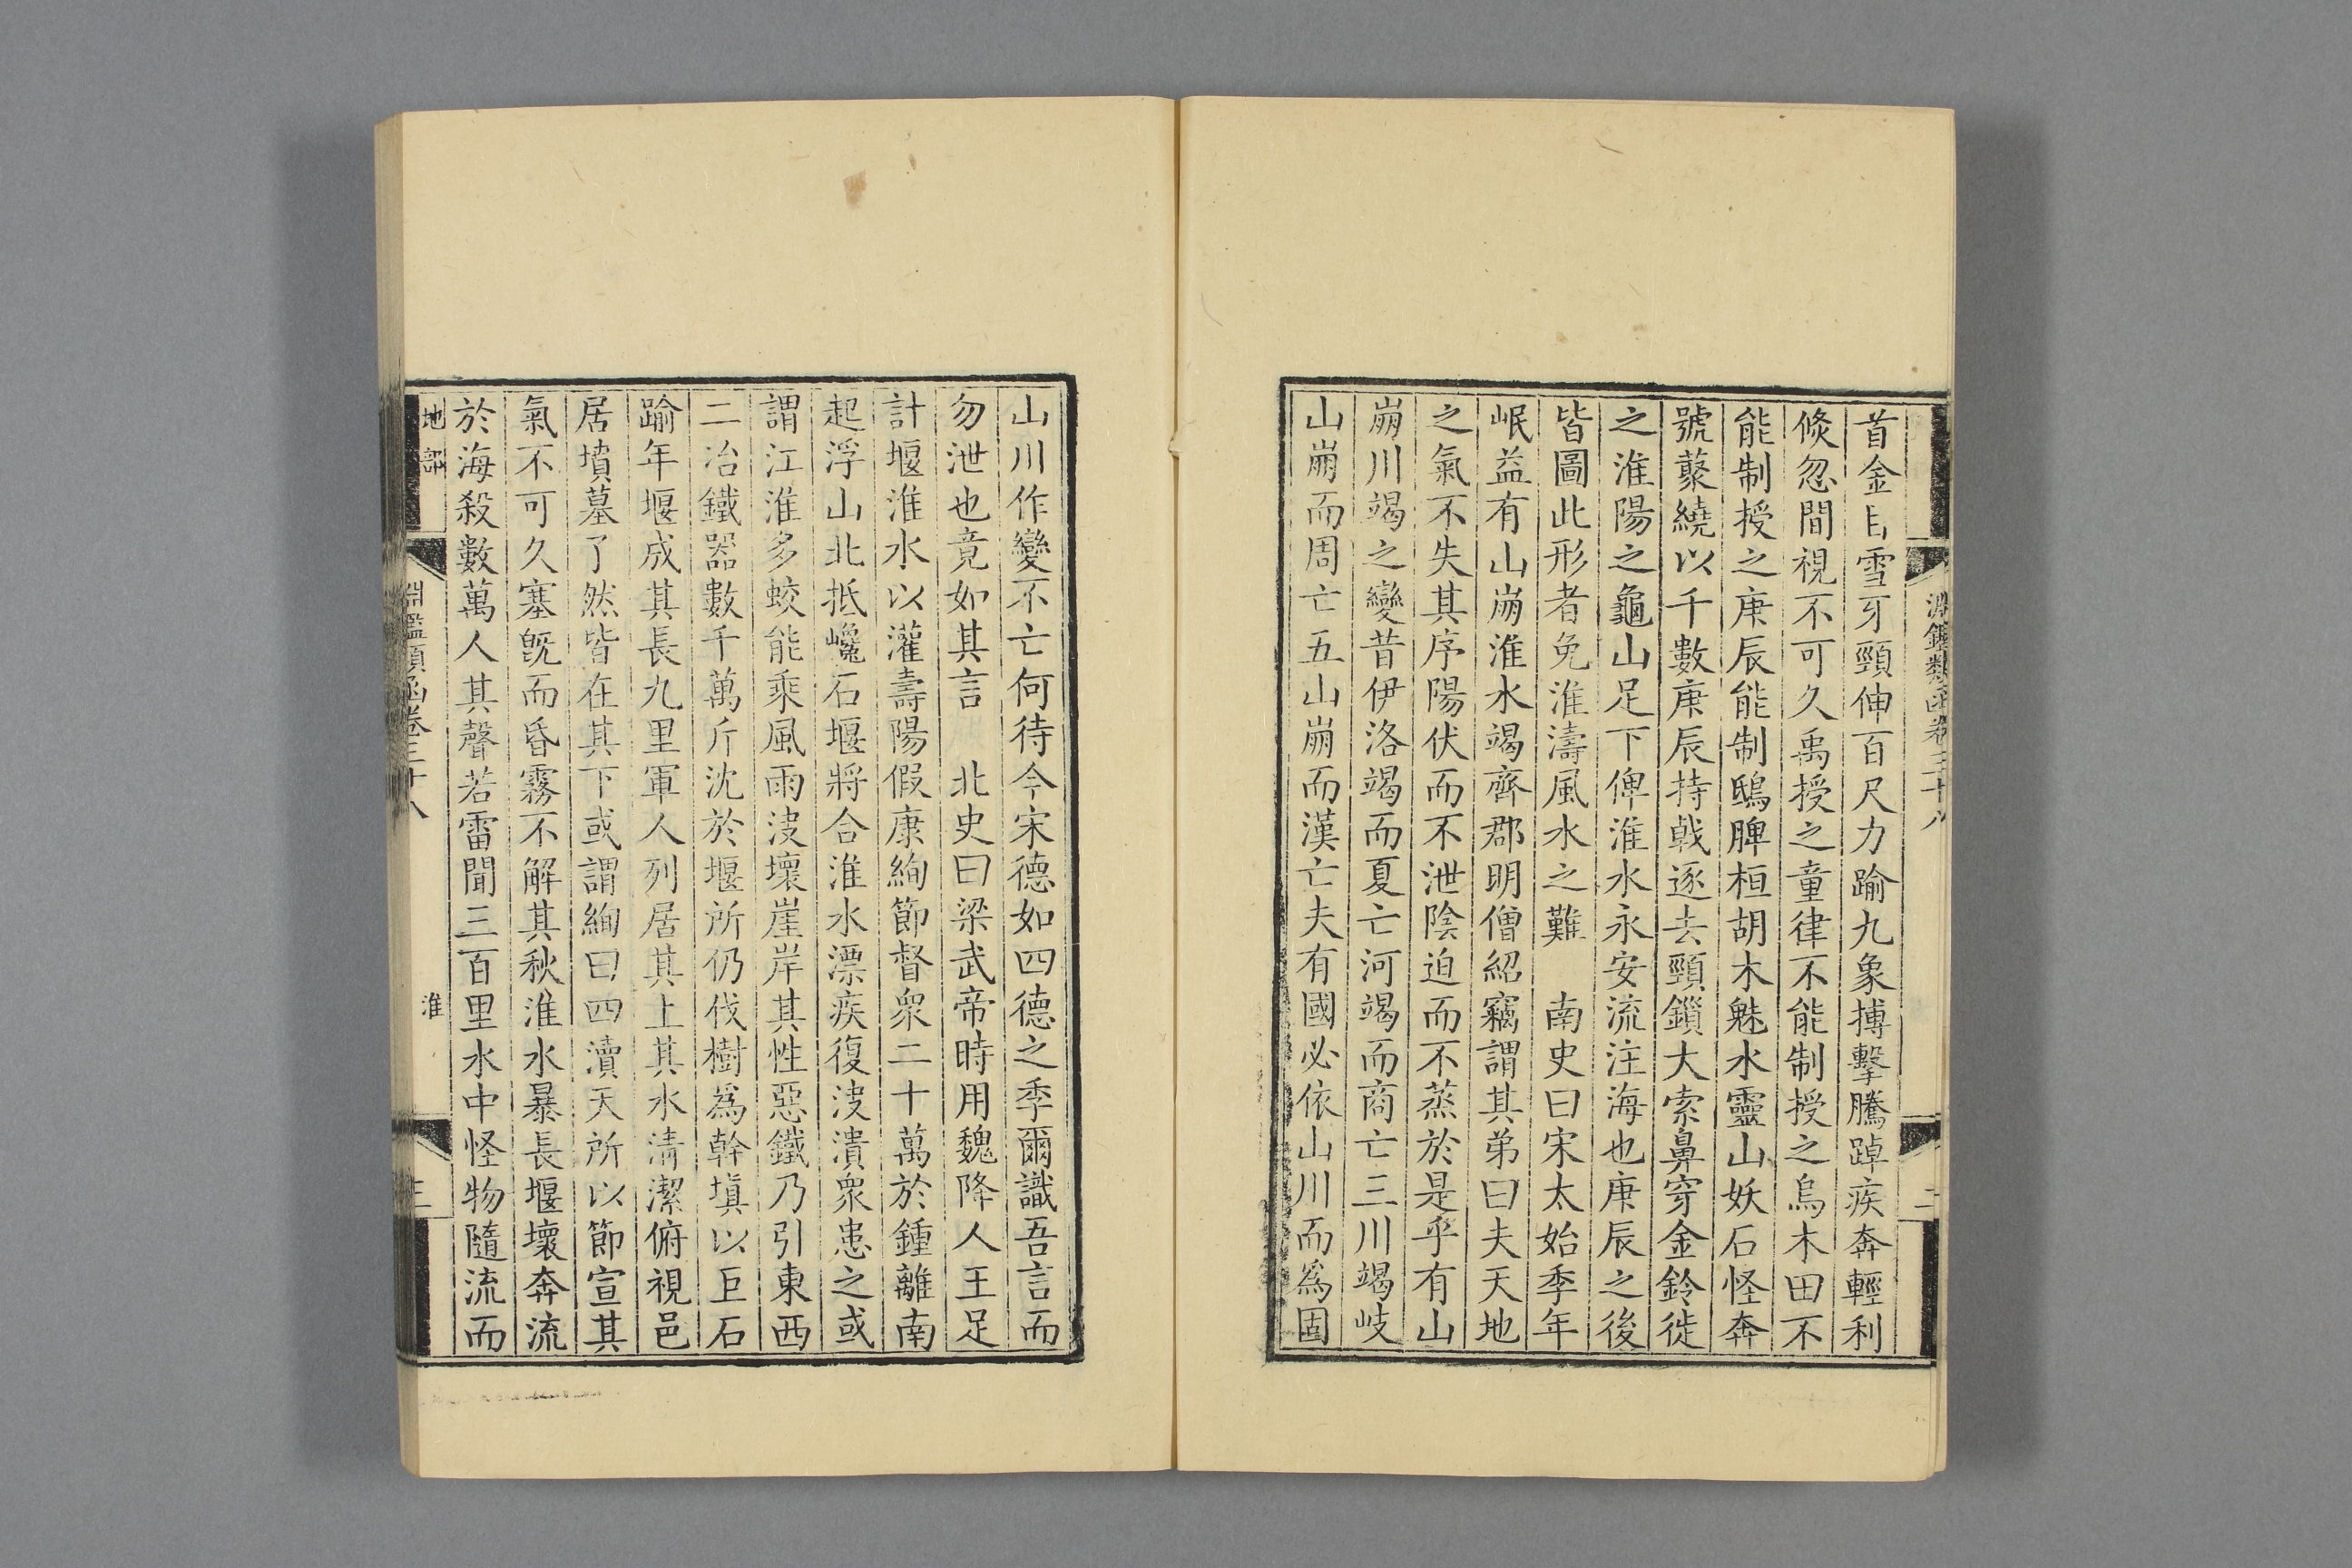 淵鑑類函卷三十八
二
首金目雪牙頸伸百尺力踰九象搏擊騰踔疾奔輕利
倏忽間視不可久禹授之童律不能制授之烏木田不
能制授之庚辰能制鴟脾桓胡木魅水靈山妖石怪奔
號藂繞以千數庚辰持戟逐去頸鎻大索鼻穿金鈴徙
之淮陽之龜山足下俾淮水永安流注海也庚辰之後
皆圖此形者免淮濤風水之難　南史曰宋太始季年
岷益有山崩淮水竭齊郡明僧紹竊謂其弟曰夫天地
之氣不失其序陽伏而不泄陰迫而不蒸於是乎有山
崩川竭之變昔伊洛竭而夏亡河竭而商亡三川竭岐
山崩而周亡五山崩而漢亡夫有國必依山川而爲固
山川作變不亡何待今宋德如四德之季爾識吾言而
勿泄也竟如其言　北史曰梁武帝時用魏降人王足
計堰淮水以灌壽陽假康絢節督衆二十萬於鍾離南
起浮山北抵巉石堰將合淮水漂疾復決潰衆患之或
謂江淮多蛟能乘風雨決壞崖岸其性惡鐵乃引東西
二冶鐵器數千萬斤沈於堰所仍伐樹爲幹塡以巨石
踰年堰成其長九里軍人列居其上其水清潔俯視邑
居墳墓了然皆在其下或謂絢曰四瀆天所以節宣其
氣不可久塞旣而昏霧不解其秋淮水暴長堰壞奔流
於海殺數萬人其聲若雷聞三百里水中怪物隨流而
地部
淵鑑類函卷三十八
淮
三